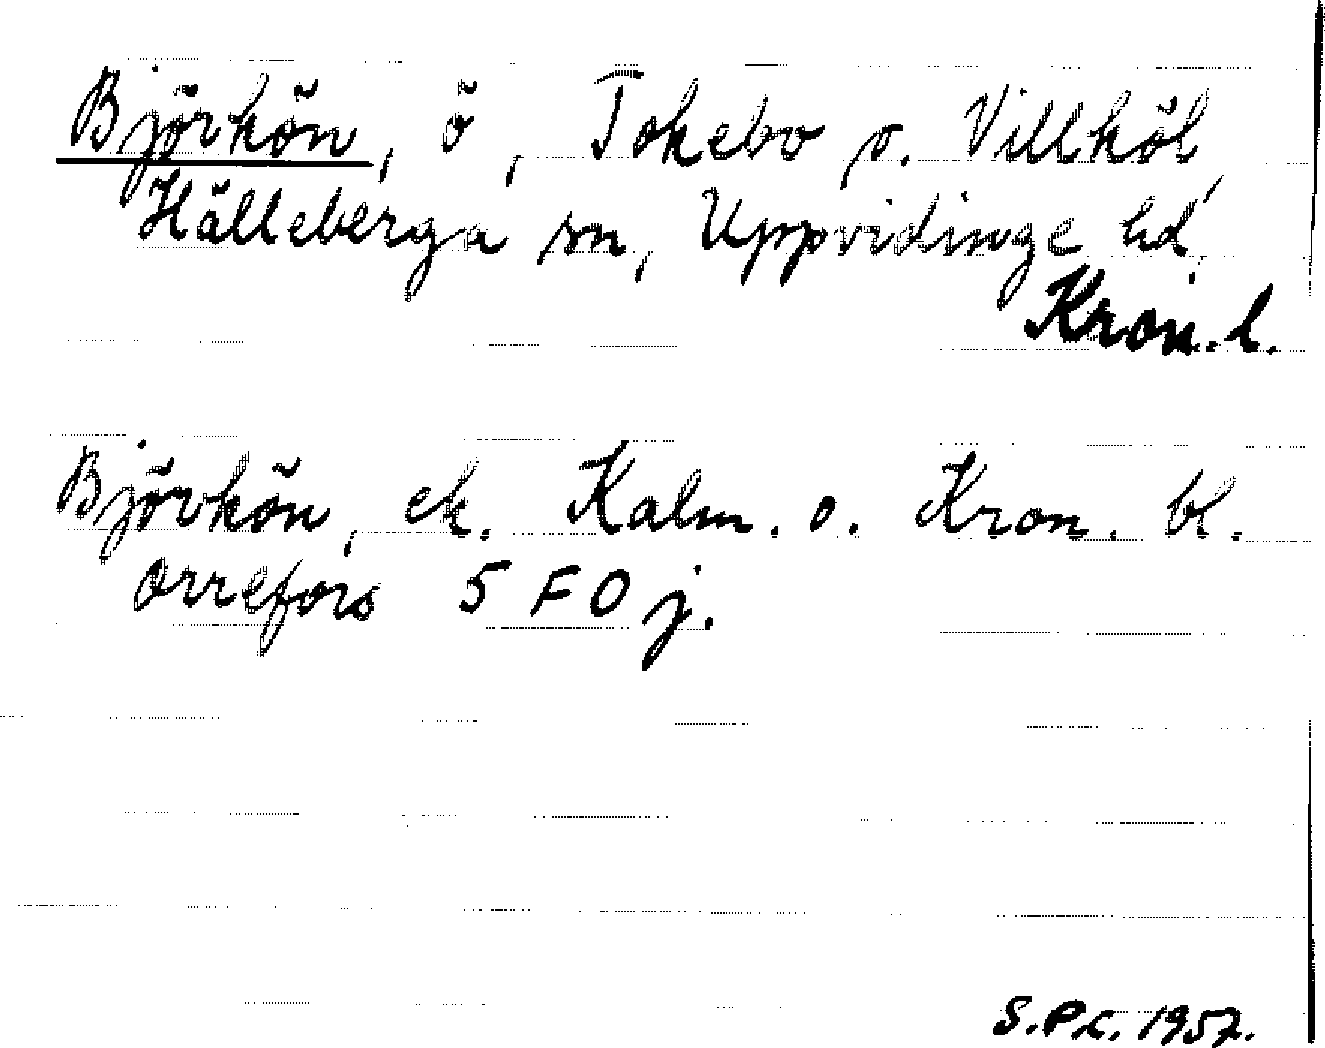 Björkön, ö, Tokebo s. Villköl,
Hälleberga sn, Uppvidinge hd,
Kron. l.
Björkön, ek. Kalm. o. Kron. bl.
Orrefors 5 F O j.
S.P.L. 1957.